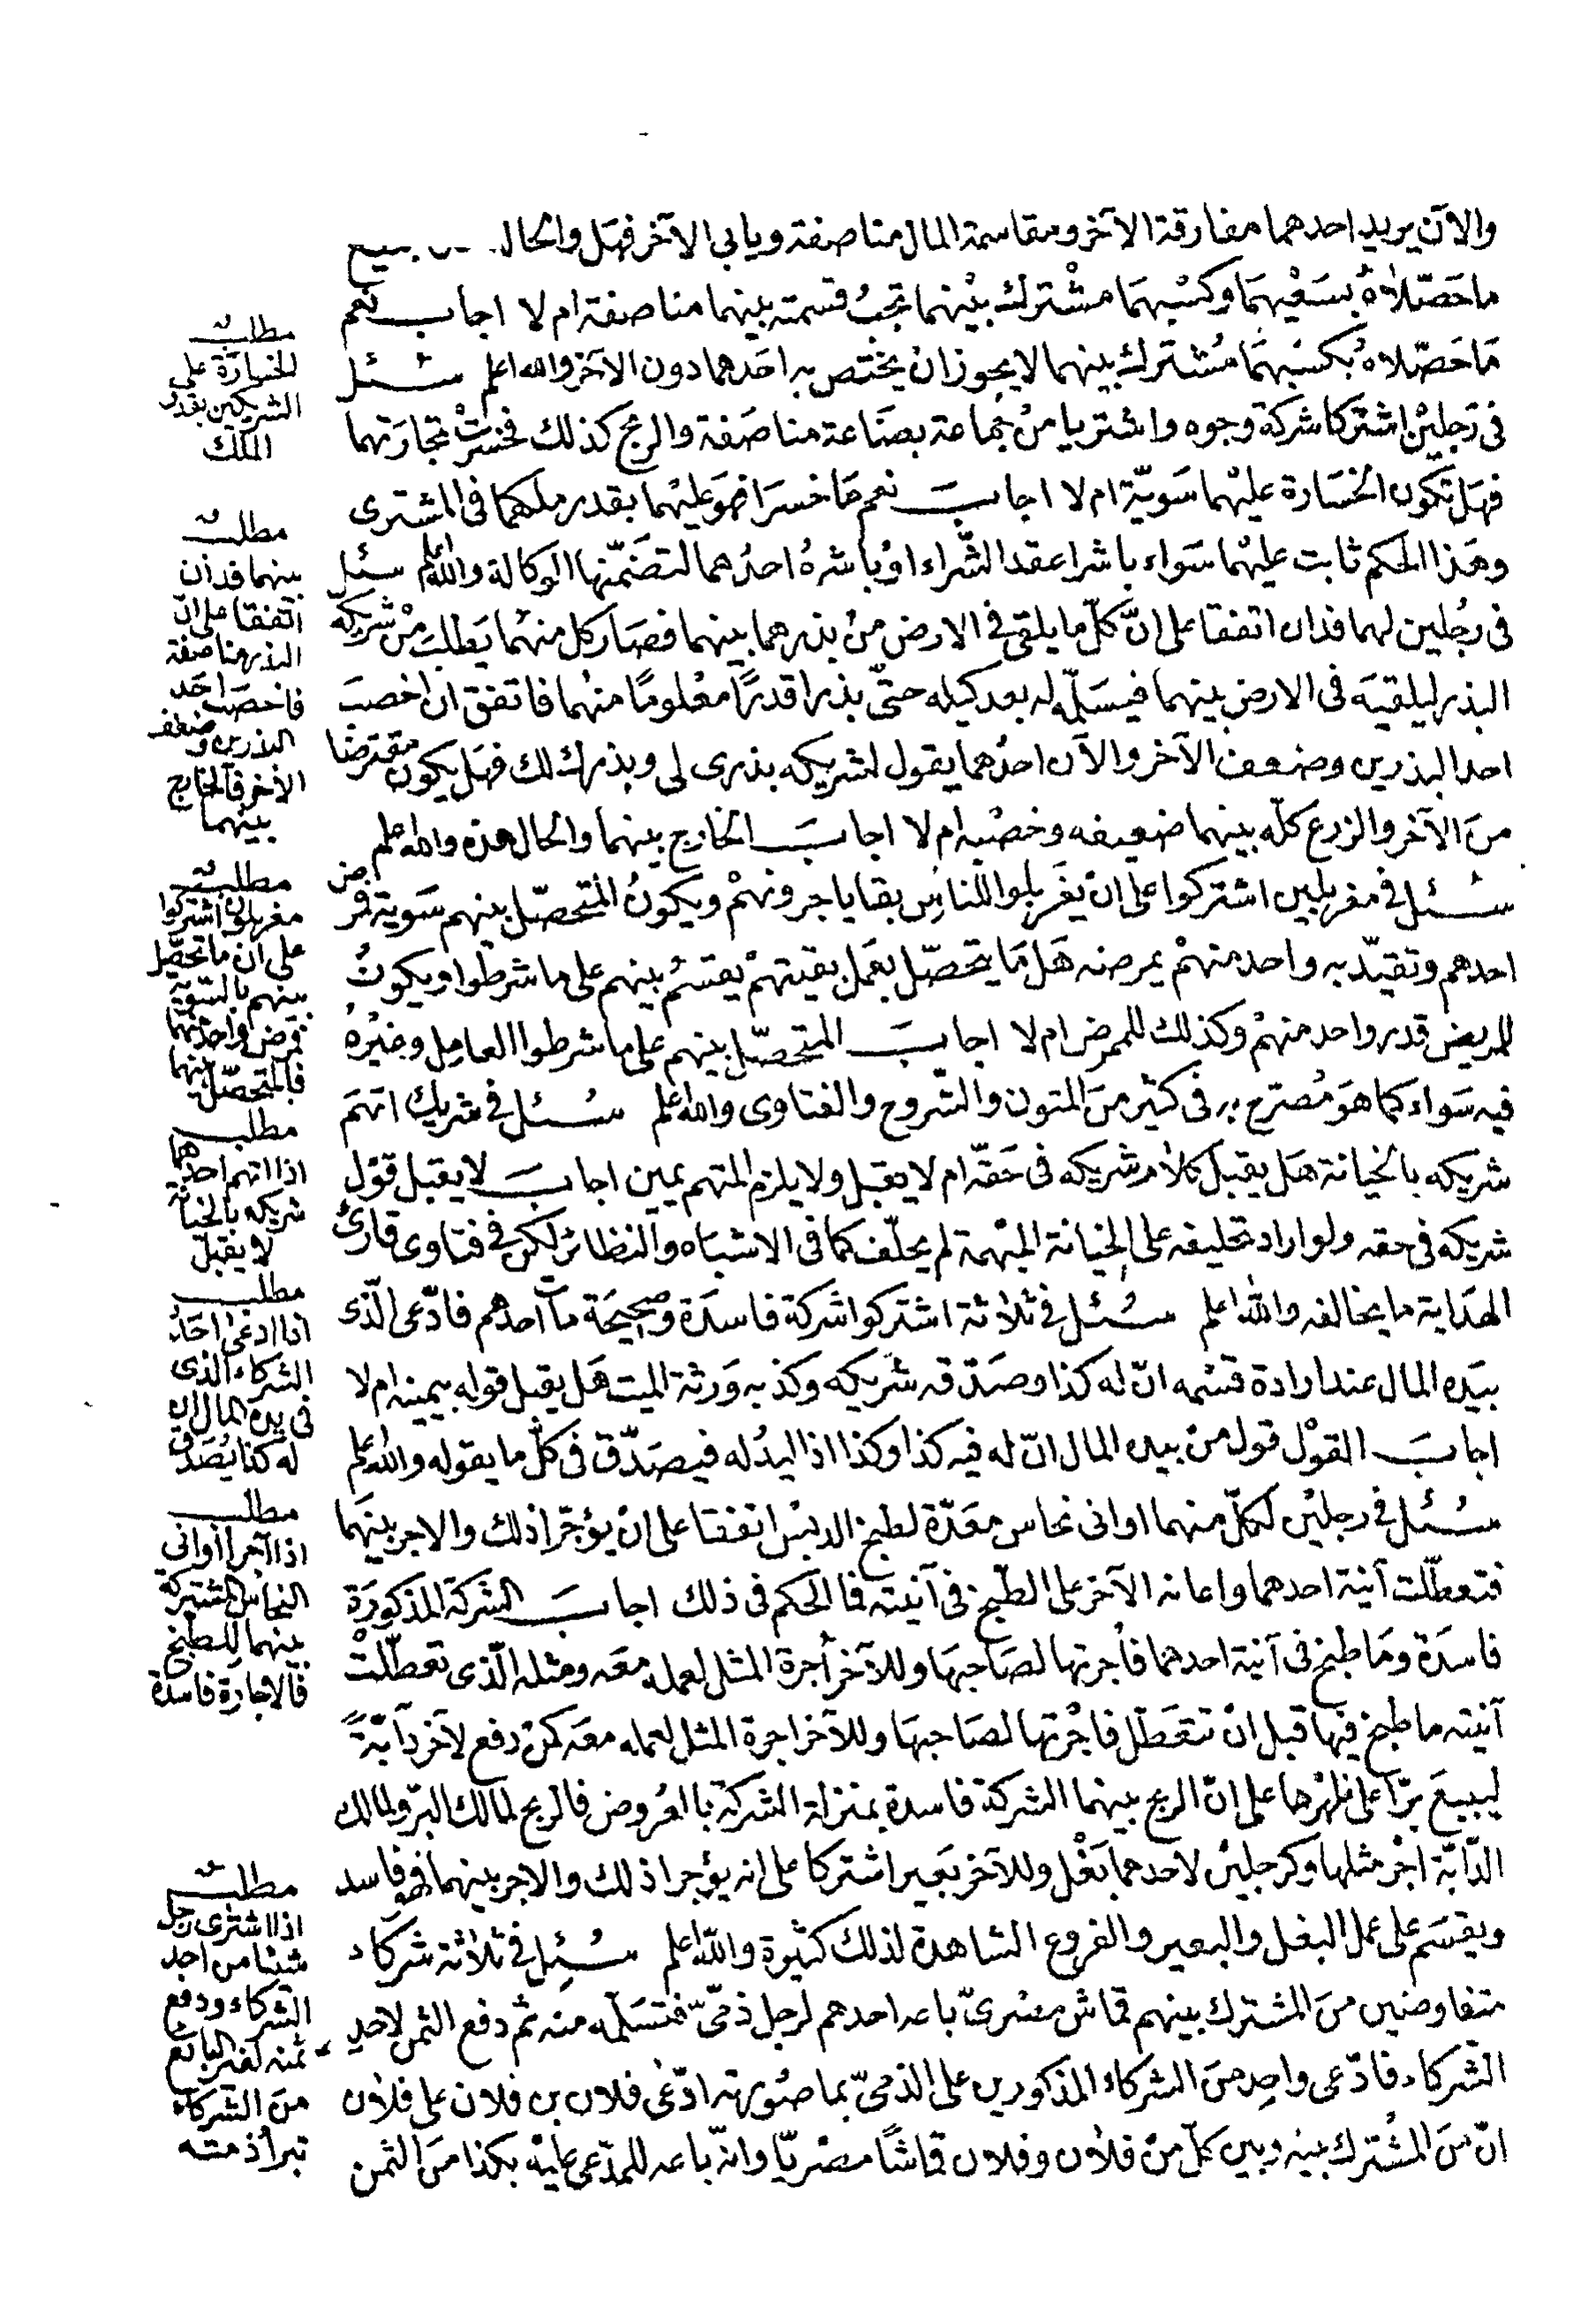 والآن يريد احدهما مفارقة الآخر ومقاسمة المال مناصفة ويابى الآخر فهل والحال
ما حصّلاه بسعيهما وكسبهما مشترك بينهما تجب قسمته بينهما مناصفة ام لا اجاب نعم
ما حصّلاه بكسبهما مشترك بينهما لا يجوز ان يختص به احدهما دون الآخر والله اعلم سئل
فى رجلين اشتركا شركة وجوه واشتريا من جماعة بضاعة مناصفة والربح كذلك فخسرت تجارتهما
فهل تكون الخسارة عليهما سويّة ام لا اجاب نعم ما خسرا فهو عليهما بقدر ملكهما فى المشترى
وهذا الحكم ثابت عليهما سواء باشرا عقد الشّراء او باشره احدهما لتضمّنها الوكالة والله اعلم سئل
فى رجلين لهما فدان اتفقا على انّ كلّ ما يلقى فى الارض من بذرهما بينهما فصار كل منهما يطلب من شريكه
البذر ليلقيه فى الارض بينهما فيسلّمه له بعد كيله حتّى بذرا قدرًا معلومًا منهما فاتفق ان اخصب
احد البذرين وضعف الآخر والآن احدهما يقول لشريكه بذرى لى وبذرك لك فهل يكون مقترضا
من الآخر والزرع كلّه بينهما ضعيفه وخصبه ام لا اجاب الخارج بينهما والحال هذه والله اعلم
سئل فى مغربلين اشتركوا على ان يغربلوا للناس بقايا جرونهم ويكون المتحصّل بينهم سوية فمرض
احدهم وتقيّد به واحد منهم يمرضه هل ما يتحصّل بعمل بقيتهم يقتسم بينهم على ما شرطوا ويكون
للمريض قدر واحد منهم وكذلك للممرض ام لا اجاب المتحصّل بينهم على ما شرطوا العامل وغيره
فيه سواء كما هو مصرّح به فى كثير من المتون والشروح والفتاوى والله اعلم سئل فى شريك اتهم
شريكه بالخيانة هل يقبل كلام شريكه فى حقّه ام لا يقبل ولا يلزم المتهم يمين اجاب لا يقبل قول
شريكه فى حقه ولو اراد تحليفه على الخيانة المبهمة لم يحلّف كما فى الاشباه والنظائر لكن فى فتاوى قارئ
الهداية ما يخالفه والله اعلم سئل فى ثلاثة اشتركوا شركة فاسدة وصحيحة مات احدهم فادّعى الّذى
بيده المال عند ارادة قسمه انّ له كذا وصدّقه شريكه وكذبه ورثة الميت هل يقبل قوله بيمينه ام لا
اجاب القول قول من بيده المال انّ له فيه كذا وكذا اذ اليد له فيصدّق فى كلّ ما يقوله والله اعلم
سئل فى رجلين لكلّ منهما اوانى نحاس معدّة لطبخ الدبس اتفقا على ان يؤجّرا ذلك والاجر بينهما
فتعطّلت آنية احدهما واعانه الآخر على الطّبخ فى آنيته فما الحكم فى ذلك اجاب الشركة المذكورة
فاسدة وما طبخ فى آنية احدهما فأجرتها لصاحبها وللآخر أجرة المثل لعمله معه ومثله الّذى تعطّلت
آنيته ما طبخ فيها قبل ان تتعطّل فاجرتها لصاحبها وللآخر اجرة المثل لعمله معه كمن دفع لآخر دآبّةً
ليبيع برّا على ظهرها على انّ الربح بينهما الشركة فاسدة بمنزلة الشركة بالعروض فالربح لمالك البرّ ولمالك
الدّآبّة اجر مثلها وكرجلين لاحدهما بغل وللآخر بعير اشتركا على انه يؤجرا ذلك والاجر بينهما فهو فاسد
ويقسم على عمل البغل والبعير والفروع الشاهدة لذلك كثيرة والله اعلم سئل فى ثلاثة شركاء
متفاوضين من المشترك بينهم قماش مصرىّ باعه احدهم لرجل ذمّىّ فتسلّمه منه ثم دفع الثمن لاحد
الشركاء فادّعى واحد من الشركاء المذكورين على الذمىّ بما صورته ادّعى فلان بن فلان على فلان
انّ من المشترك بينه وبين كلّ من فلان وفلان قماشًا مصريّا وانّه باعه للمدّعى عليه بكذا من الثمن
مطلب
الخسارة على
الشريكين بقدر
الملك
مطلب
بينهما فدان
اتفقا على انّ
البذر مناصفة
فاخصب احد
البذرين وضعف
الآخر فالخارج
بينهما
مطلب
مغربلون اشتركوا
على ان ما تحصّل
بينهم بالسّوية
فمرض واحد منهما
فالمتحصّل بينهما
مطلب
اذا اتهم احدهما
شريكه بالخيانة
لا يقبل
مطلب
اذا ادعى احد
الشركاء الذى
فى يده المال ان
له كذا يصدق
مطلب
اذا آجرا اوانى
النحاس المشتركة
بينهما للطبخ
فالاجارة فاسدة
مطلب
اذا اشترى رجل
شيئا من احد
الشركاء ودفع
ثمنه لغير البائع
من الشركاء
تبرأ ذمته